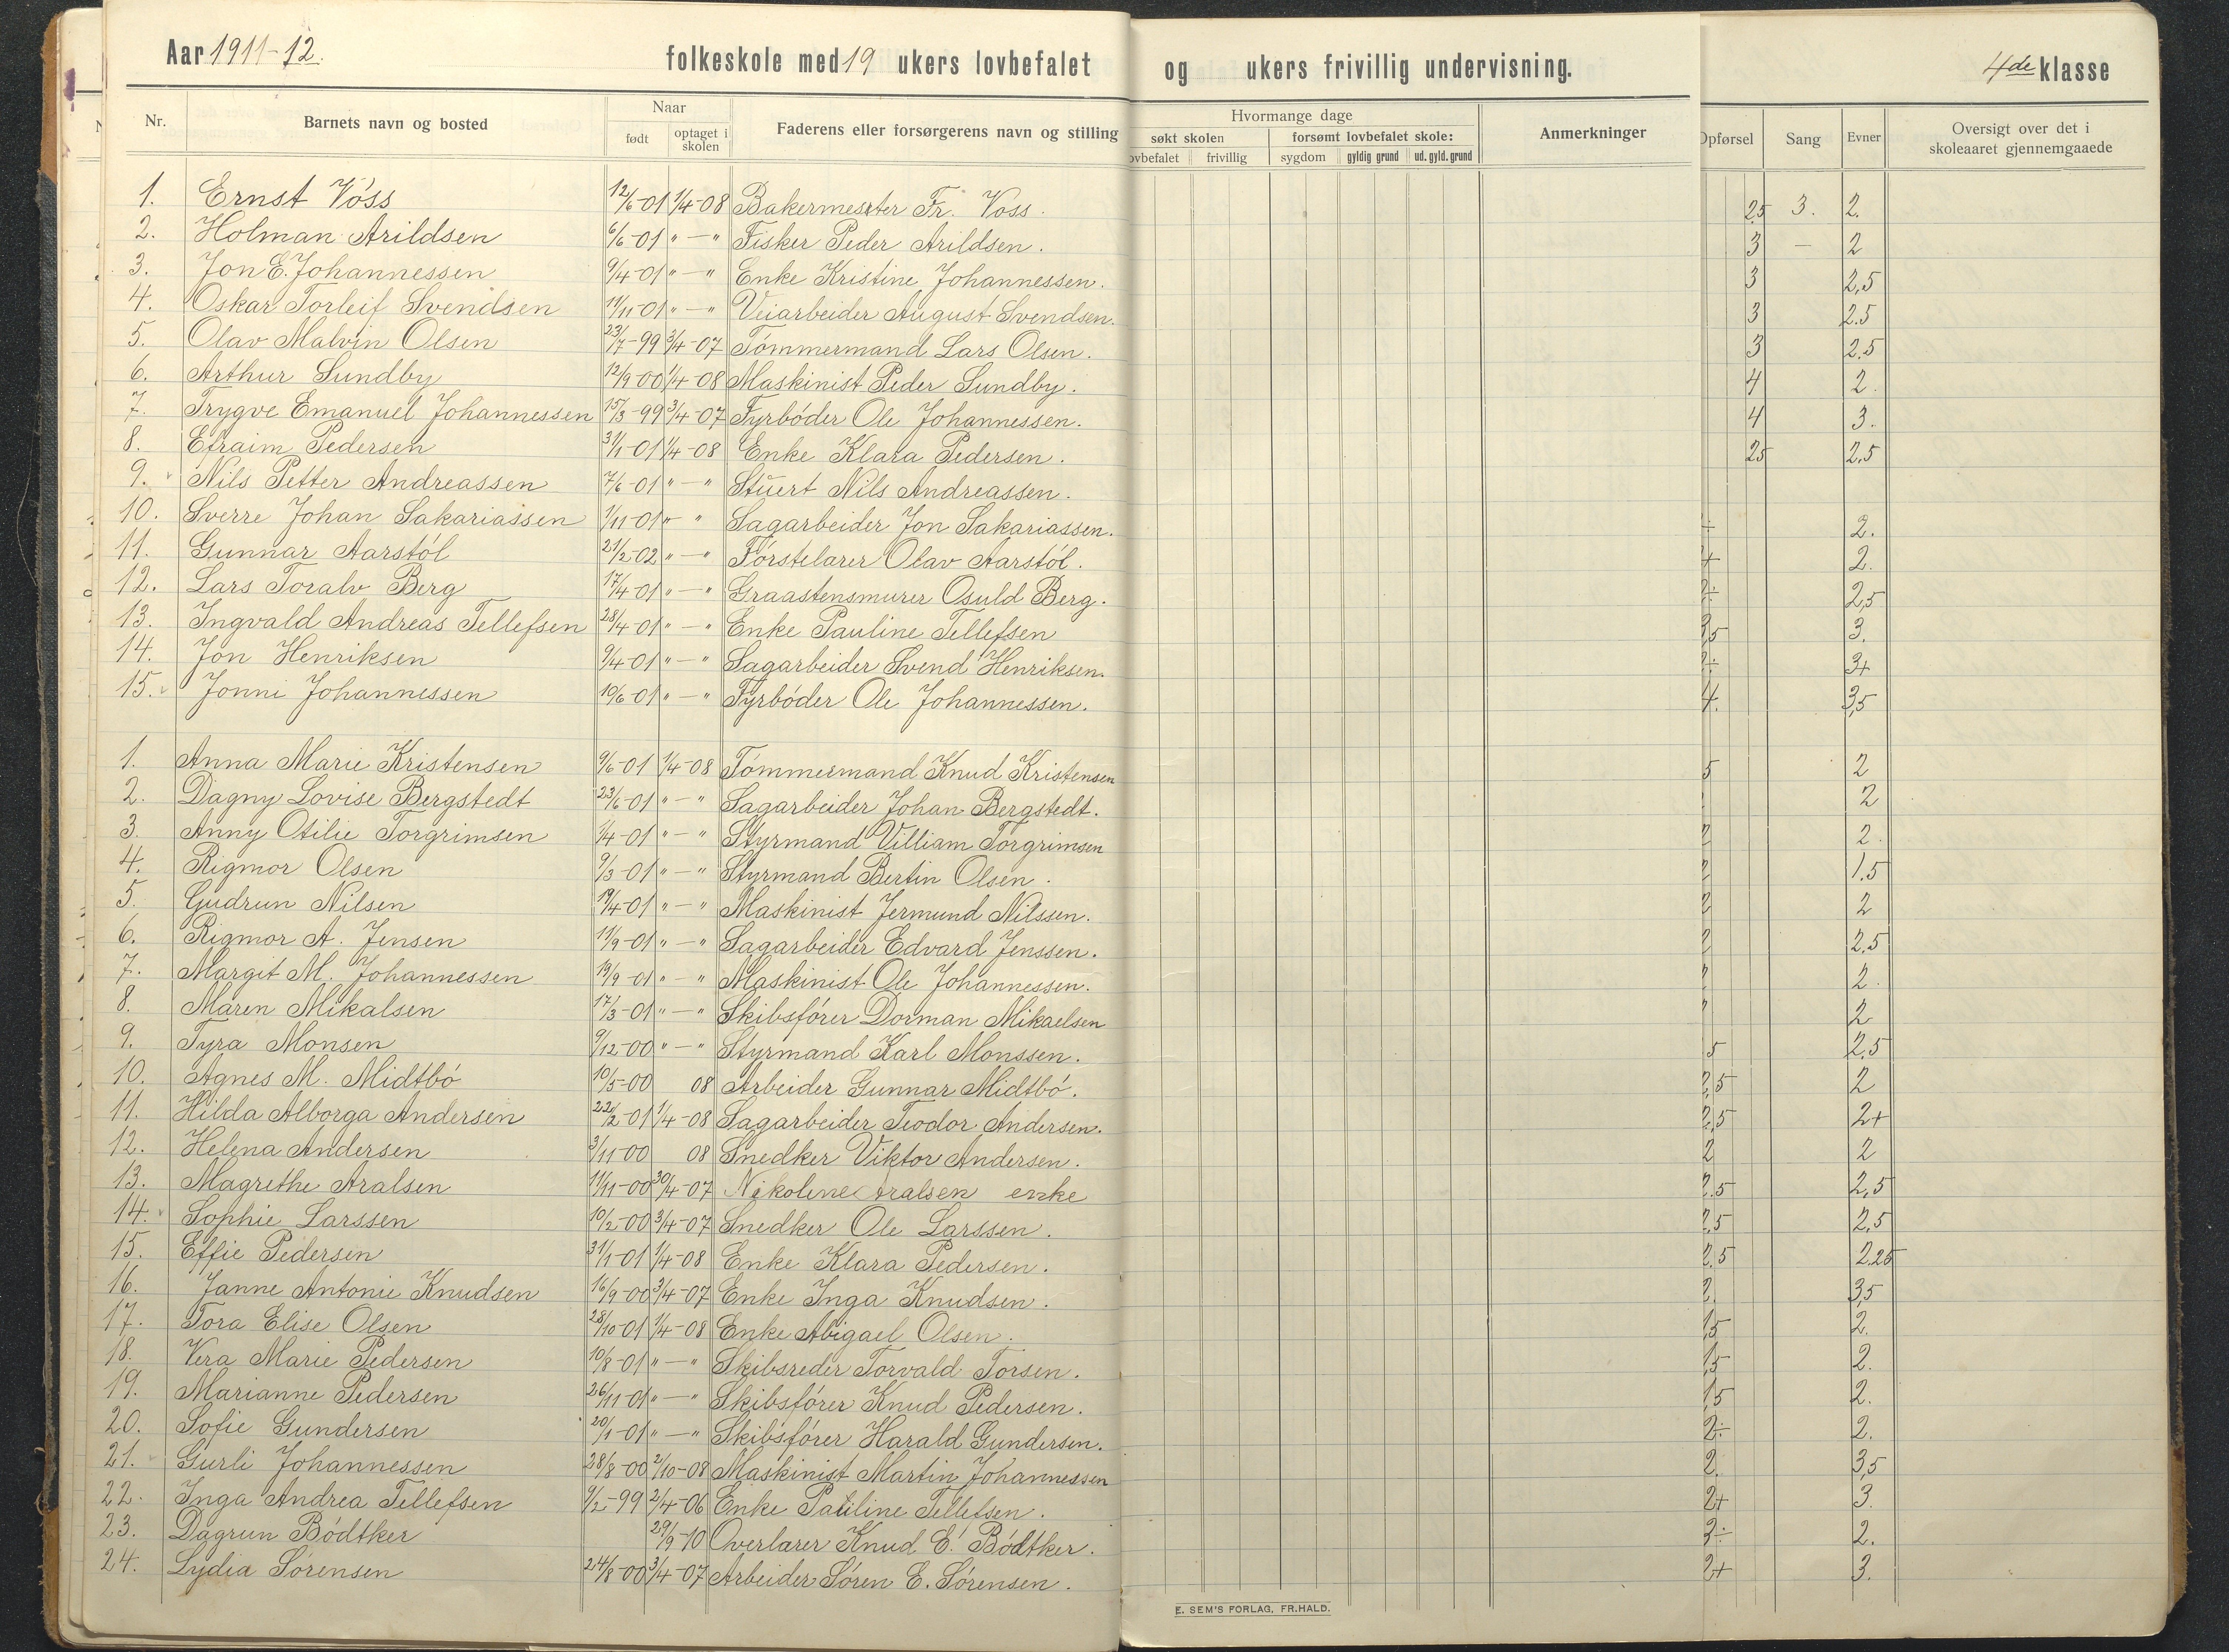 Aar 1911-12. folkeskole med 19 ukers lovbefalet og ukers frivillig undervisning. 4de klasse
Nr. Barnets navn og bosted Naar født optaget i skolen Faderens eller forsørgerens navn og stilling Hvormange dage søkt skolen ovbefalet frivillig forsømt lovbefalet skole: sygdom gyldig grund ud. gyld. grund Anmerkninger Opførsel Sang Evner Oversigt over det i skoleaaret gjennemgaaede
1. Ernst Voss 12/6-01 1/4-08 Bakermester Fr. Voss. 25 3. 2.
2. Holman Arildsen 6/6-01 " - " Fisker Peder Arildsen. 3 - 2
3. Jon E. Johannessen 9/4-01 " - " Enke Kristine Johannessen. 3 2,5
4. Oskar Torleif Svendsen 11/11-01 " - " Veiarbeider August Svendsen. 3 2.5
5. Olav Malvin Olsen 23/7-99 3/4-07 Tömmermand Lars Olsen. 3 2.5
6. Arthur Sundby 12/9-00 1/4-08 Maskinist Peder Sundby. 4 2.
7. Trygve Emanuel Johannessen 15/3-99 3/4-07 Fyrböder Ole Johannessen. 4 3.
8. Efraim Pedersen 31/1-01 1/4-08 Enke Klara Pedersen. 25 2,5
9. Nils Petter Andreassen 7/6-01 " - " Stuert Nils Andreassen.
10. Sverre Johan Sakariassen 1/11-01 " - " Sagarbeider Jon Sakariassen. 2.
11. Gunnar Aarstöl 21/2-02 " - " Förstelærer Olav Aarstöl. 2.
12. Lars Toralv Berg 17/4-01 " - " Graastensmurer Osuld Berg. 2,5
13. Ingvald Andreas Tellefsen 28/4-01 " - " Enke Pauline Tellefsen 3.
14. Jon Henriksen 9/4-01 " - " Sagarbeider Svend Henriksen. 3+
15. Jonni Johannessen 10/6-01 " - " Fyrböder Ole Johannessen. 4. 3,5
1. Anna Marie Kristensen 9/6-01 1/4-08 Tömmermand Knud Kristensen 5 2
2. Dagny Lovise Bergstedt 23/6-01 " - " Sagarbeider Johan Bergstedt. 2
3. Anny Otilie Torgrimsen 1/4-01 " - " Styrmand Villiam Torgrimsen 2 2.
4. Rigmor Olsen 9/3-01 " - " Styrmand Bertin Olsen. 2 1.5
5. Gudrun Nilsen 19/4-01 " - " Maskinist Jermund Nilssen. 2 2
6. Rigmor A. Jensen 11/9-01 " - " Sagarbeider Edvard Jenssen. 2 2.5
7. Margit M. Johannessen 19/9-01 " - " Maskinist Ole Johannessen. 2.
8. Maren Mikalsen 17/3-01 " - " Skibsförer Dorman Mikaelsen 2
9. Tyra Monsen 9/12-00 " - " Styrmand Karl Monssen. 5 2,5
10. Agnes M. Midtbö 10/5-00 08 Arbeider Gunnar Midtbö. 2,5 2
11. Hilda Alborga Andersen 22/2-01 1/4-08 Sagarbeider Teodor Andersen. 2,5 2+
12. Helena Andersen 3/11-00 08 Snedker Viktor Andersen. 2 2
13. Magrethe Aralsen 11/11-00 30/4-07 Nikoline Aralsen enke 2.5 2,5
14. Sophie Larssen 10/2-00 3/4-07 Snedker Ole Larssen. 2,5 2.5
15. Effie Pedersen 31/1-01 1/4-08 Enke Klara Pedersen. 2,5 2.25
16. Janne Antonie Knudsen 16/9-00 3/4-07 Enke Inga Knudsen. 2. 3,5
17. Tora Elise Olsen 28/10-01 1/4-08 Enke Abigael Olsen. 1,5 2.
18. Vera Marie Pedersen 10/8-01 " - " Skibsreder Torvald Torsen. 1,5 2.
19. Marianne Pedersen 26/11-01 " - " Skibsförer Knud Pedersen. 1,5 2.
20. Sofie Gundersen 20/1-01 " - " Skibsförer Harald Gundersen. 2÷ 2.
21. Gurli Johannessen 28/8-00 2/10-08 Maskinist Martin Johannessen 2. 3,5
22. Inga Andrea Tellefsen 9/2-99 2/4-06 Enke Pauline Tellefsen. 2+ 3.
23. Dagrun Bödtker 29/9-10 Overlærer Knud E. Bödtker. 3÷ 2.
24. Lydia Sörensen 24/8-00 3/4-07 Arbeider Sören E. Sörensen. 2+ 3.
E. SEM'S FORLAG, FR.HALD.